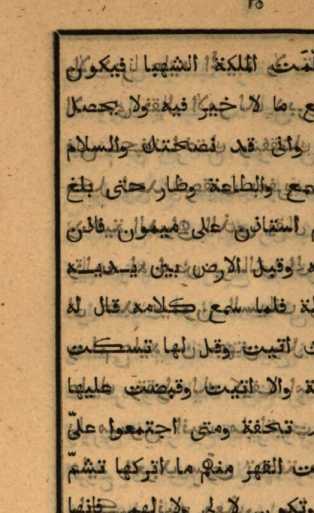 ٢٥
الملكة الشهبا فيكون
ما لا خير فيه ولا يحصل
وانى قد نصحتك والسلام
والطاعة وطار حتى بلغ
استاذن على ميمون فاذن
وقبل الارض بين يديه
فلما سمع كلامه قال له
اتيت وقل لها تسكت
والا اتيت وقبضت عليها
تحفة ومتى اجتمعوا علىّ
القهر منهم ما اتركها تشمّ
لا لى ولا لهم فانها